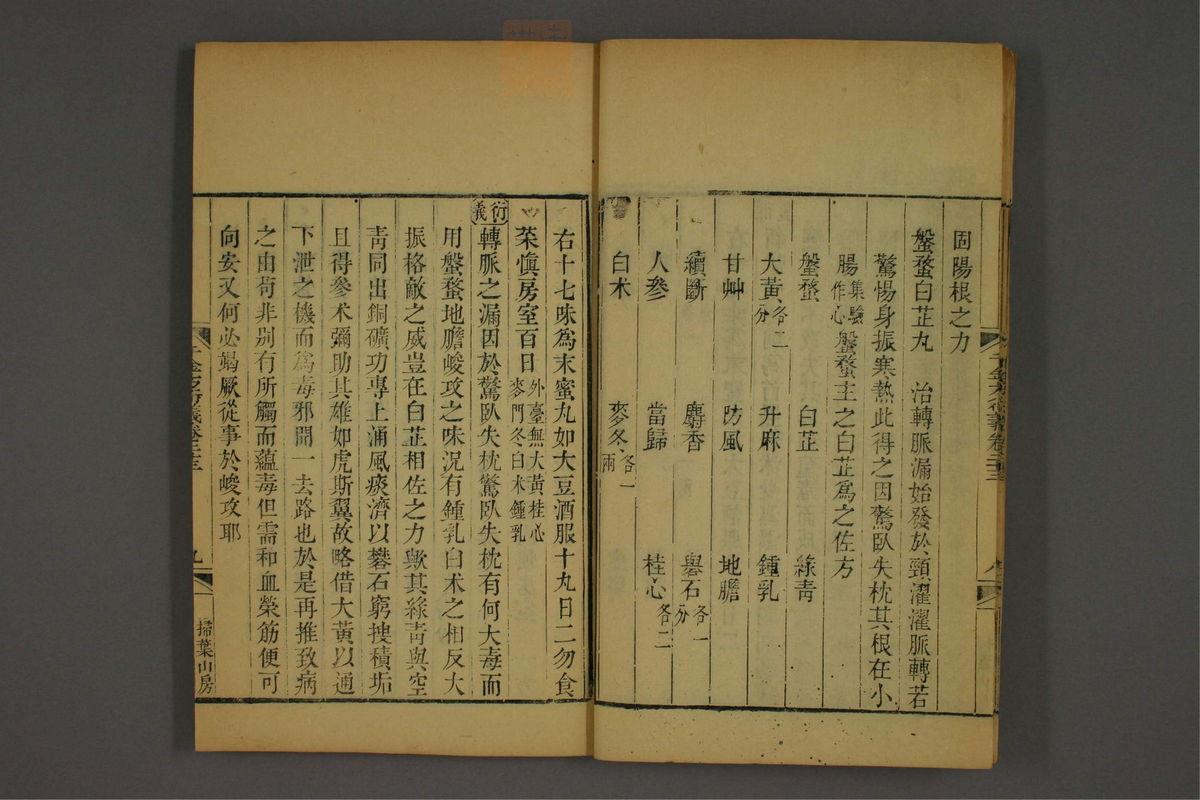 固陽根之力
盤蝥白芷丸　治轉脈漏始發於頸濯濯脈轉若
驚惕身振寒熱此得之因驚臥失枕其根在小
腸集驗作心盤蝥主之白芷爲之佐方
盤蝥　白芷　綠青
大黃各二分　升麻　鍾乳
甘艸　防風　地膽
續斷　麝香　礜石各一分
人參　當歸　桂心各二
白术　麥冬各一兩
千金方衍義卷二十三
八
右十七味爲末蜜丸如大豆酒服十丸日二勿食
菜愼房室百日外臺無大黃桂心麥門冬白术鍾乳
衍義轉脈之漏因於驚臥失枕驚臥失枕有何大毒而
用盤蝥地膽峻攻之味況有鍾乳白术之相反大
振格敵之威豈在白芷相佐之力歟其綠青與空
靑同出銅礦功專上涌風痰濟以礬石窮搜積垢
且得參术彌助其雄如虎斯翼故略借大黃以通
下泄之機而爲毒邪開一去路也於是再推致病
之由苟非別有所觸而蘊毒但需和血榮筋便可
向安又何必竭厥從事於峻攻耶
千金方衍義卷二十三
九
掃葉山房